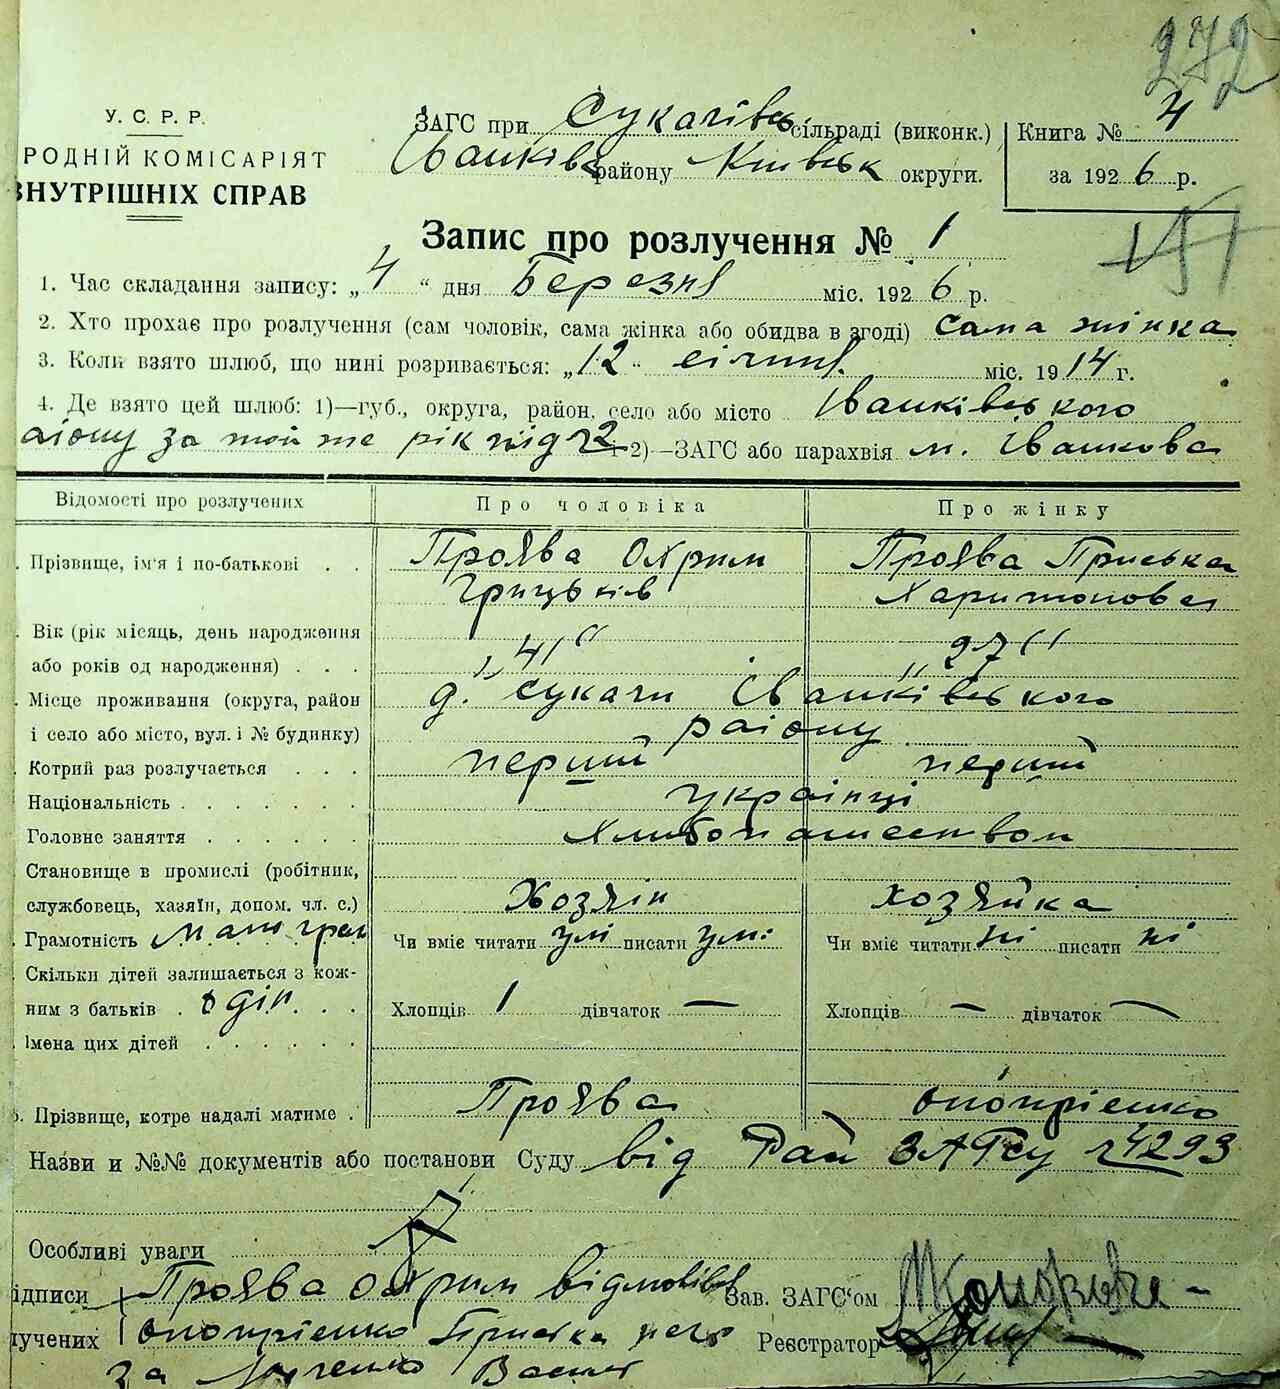 272
У. С. Р. Р.
РОДНІЙ КОМІСАРІЯТ
ВНУТРІШНІХ СПРАВ
ЗАГС при Сукачівсь сільраді (виконк.)
Іванків району Київськ округи.
Книга № 4
за 1926 р.
Запис про розлучення № 1
1. Час складання запису: „4“ дня Березня міс. 1926 р.
2. Хто прохає про розлучення (сам чоловік, сама жінка або обидва в згоді) сама жінка
3. Коли взято шлюб, що нині розривається: „12“ січня міс. 1914 г.
4. Де взято цей шлюб: 1)—губ., округа, район, село або місто Іванківського
аіону за той же рік під ч2 2)—ЗАГС або парахвія м. Іванкова
Відомості про розлучених Про чоловіка Про жінку
Прізвище, ім'я і по-батькові . . Проява Охрим Проява Приська
Грицьків Харитонова
Вік (рік місяць, день народження
або років од народження) . . . „41“ „27“
Місце проживання (округа, район д. Сукачи Іванківського
і село або місто, вул. і № будинку) раіону
Котрий раз розлучається . . . перший перший
Національність . . . . . . . українці
Головне заняття . . . . . . Хлибопашеством
Становище в промислі (робітник,
службовець, хазяїн, допом. чл. с.) Хозяін хозяйка
Грамотність Чи вміє читати умі писати умі Чи вміє читати ні писати ні
Скільки дітей залишається з кож-
ним з батьків . один . . . Хлопців 1 дівчаток — Хлопців — дівчаток —
Імена цих дітей . . . . . .
Прізвище, котре надалі матиме . Проява Онопрієнко
Назви и №№ документів або постанови Суду від Рай ЗАГСу ч 4293
Особливі уваги
ідписи Проява Охрим відмовівсь Зав. ЗАГС'ом
лучених Онопрієнко Приська Реєстратор
за